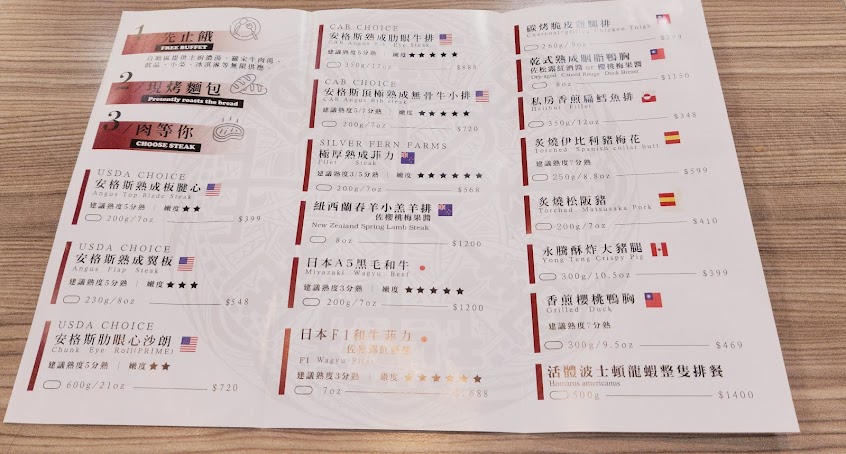 1 先止餓
FREE BUFFET
2 現烤麵包
Presently roasts the bread
3 肉等你
CHOOSE STEAK
USDA CHOICE
安格斯熟成板腱心
Angus Top Blade Steak
嫩度★★
200g/7oz $399
USDA CHOICE
安格斯熟成翼板
Angus Flap Steak
建議熟度5分熟 | 嫩度★★★
230g/8oz $548
USDA CHOICE
安格斯肋眼心沙朗
Chunk Eye Roll(PRIME)
建議熟度5分熟 | 嫩度★★
600g/21oz $720
CAB CHOICE
安格斯熟成肋眼牛排
建議熟度5分熟 | 嫩度★★★★
350g/12oz $888
CAB CHOICE
安格斯頂極熟成無骨牛小排
CAB Angus Rib steak
建議熟度5/7分熟 | 嫩度★★★★★
200g/7oz $720
SILVER FERN FARMS
極厚熟成菲力
Filet Steak
建議熟度3/5分熟 | 嫩度★★★★★★
200g/7oz $568
紐西蘭春羊小羔羊排
佐櫻桃梅果醬
New Zealand Spring Lamb Steak
8oz $1200
日本A5黑毛和牛
Miyazaki Wagyu Beef
建議熟度3分熟 | 嫩度★★★★★
200g/7oz $1200
日本F1和牛菲力
F1 Wagyu
建議熟度3分熟 | 嫩度★★★★★★
7oz
碳烤脆皮雞腿排
260g/9oz $379
乾式熟成胭脂鴨胸
佐松露紅酒醬 or 櫻桃梅果醬
8oz $1150
私房香煎扁鱈魚排
Halibut Fillet
350g/12oz $348
炙燒伊比利豬梅花
Torched Spanish collar butt
建議熟度7分熟
250g/8.8oz $599
炙燒松阪豬
Torched Matsusaka Pork
200g/7oz $410
永騰酥炸大豬腿
Yong Teng Crispy Pig
300g/10.5oz $399
香煎櫻桃鴨胸
Grilled Duck
建議熟度7分熟
300g/9.5oz $469
活體波士頓龍蝦整隻排餐
Homarus americanus
500g $1400